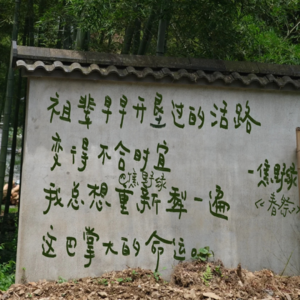 祖辈早早开垦过的活路
变得不合时宜
我总想重新犁一遍
这巴掌大的命运